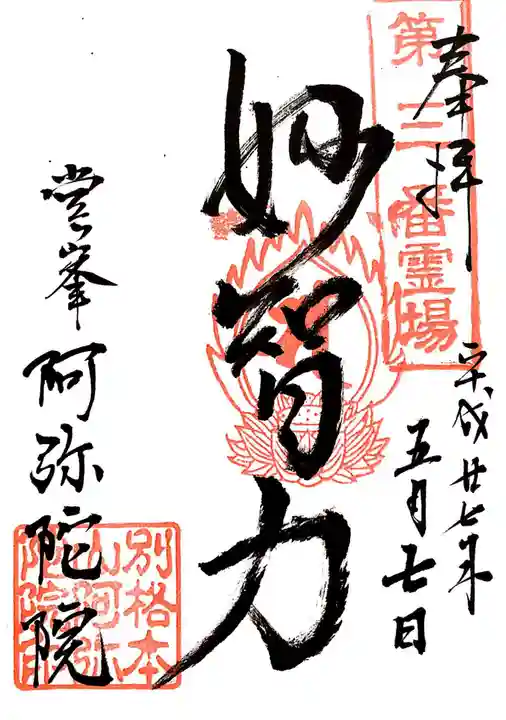 奉拝
第三番霊場
平成廿七年
五月七日
妙智力
営峯
阿弥陀院
別格本
山阿弥
陀院